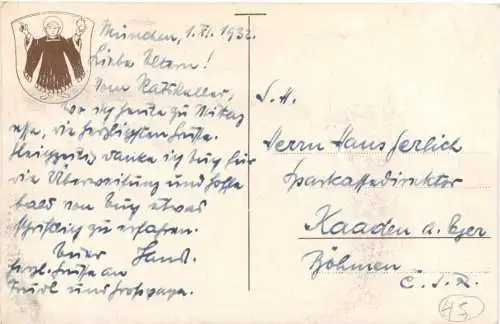 München, 1. XI. 1932.
Liebe Eltern!
Vom Ratskeller,
wo ich heute zu Mittag
esse, die herzlichsten Grüsse.
Gleichzeitig danke ich Euch für
die Überweisung und hoffe
bald von Euch etwas
schriftlich zu erfahren.
Euer Hansl.
Herzl. Grüsse an
Trudl und Grosspapa.
S. H.
Herrn Hans Gerlich
Sparkassedirektor
Kaaden a. Eger
Böhmen
Č. S. R.
45